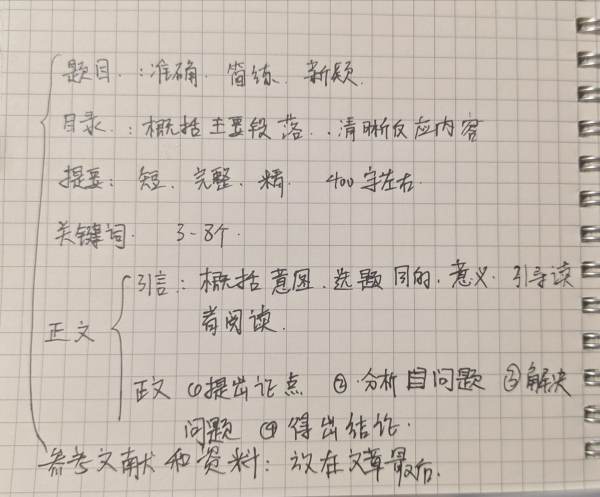 题目：准确、简练、新颖
目录：概括主要段落、清晰反应内容
提要：短、完整、精 400字左右.
关键词 3-8个.
引言：概括意图、选题目的、意义、引导读
者阅读.
正文
正文 ①提出论点 ②分析问题 ③解决
问题 ④得出结论.
参考文献和资料：放在文章最后.